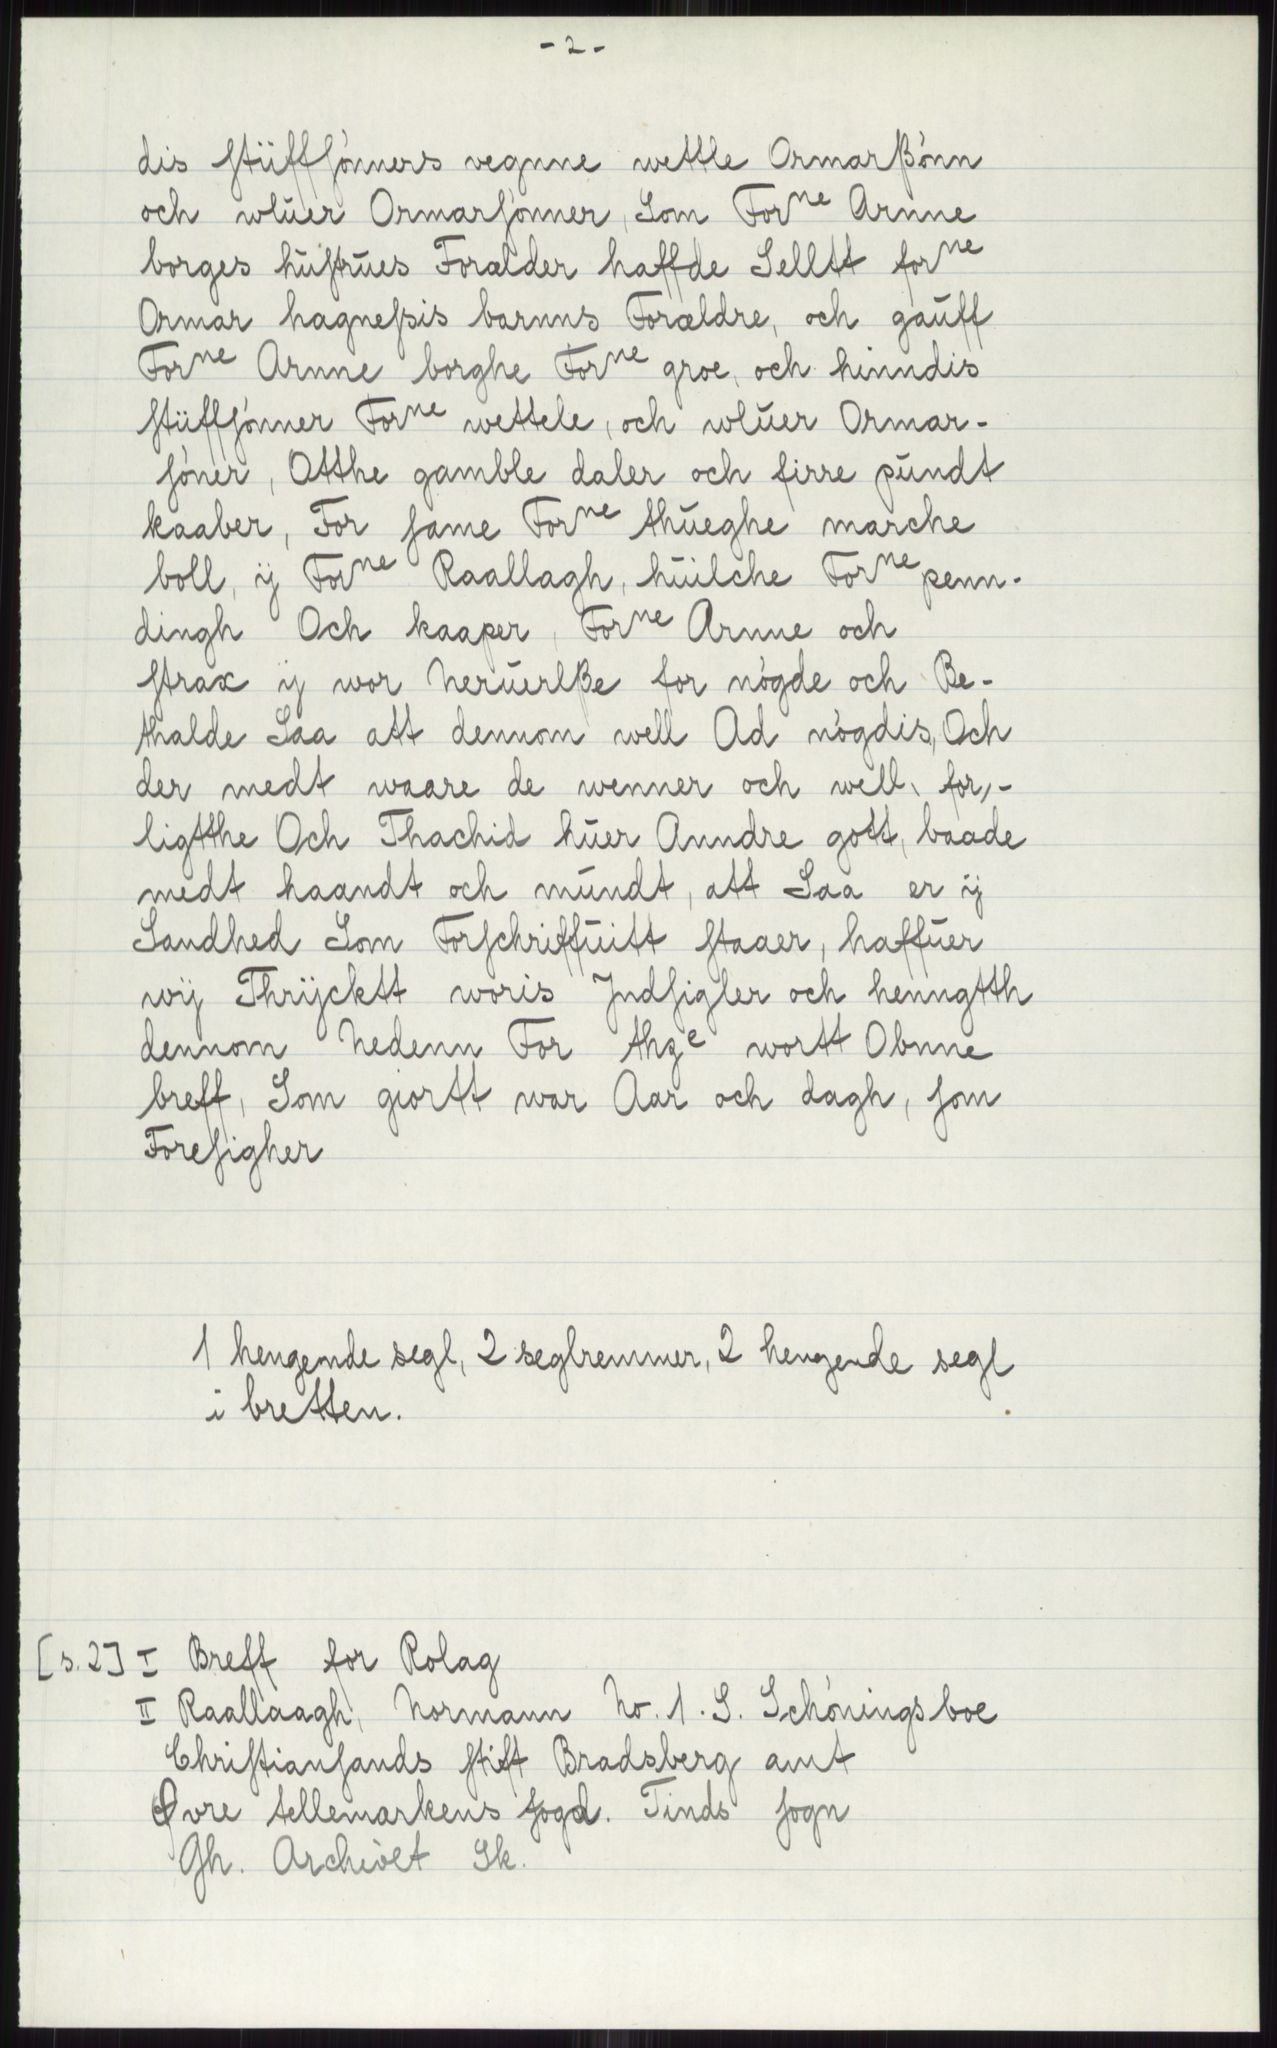 - 2 -
dis stüffsónners vegnne wettle Ormarßónn
och wlŭer Ormarsónner, Som Forⁿᵉ Arnne
borges hŭstrŭes Forælder haffde Selltt forⁿᵉ
Ormar hagnessis barnns Forældre, och gaŭff
Forⁿᵉ Arnne borghe Forⁿᵉ groe, och hinndis
stüffsónner Forⁿᵉ wettele, och wlŭer Ormar-
sóner, Otthe gamble daler och firre pŭndt
kaaber, For same Forⁿᵉ thŭeghe marche
boll, ij Forⁿᵉ Raallagh, hŭilche Forⁿᵉ penn-
dingh Och kaaper, Forⁿᵉ Arnne och
strax ij wor Neruerlße for nógde och Be-
thalde Saa att dennom well Ad nógdis, Och
der medt waare de wenner och well, for,-
ligtthe Och Thachid hŭer Anndre gott, baade
medt haandt och mŭndt, att Saa er ij
Sandhed Som Forschriffŭitt staaer, haffŭer
wij Thrijcktt woris Jndsigler och henngtth
dennom Nedenn For thzᵉ wortt Obnne
breff, Som giortt war Aar och dagh, som
Foresigher
1 hengende segl, 2 seglremmer, 2 hengende segl
i bretten.
[s. 2] I Breff for Rolag
II Raallaagh, Normann No. 1. S. Schónings boe
Christiansands stift Bradsberg amt
Øvre tellemarkens fogd. Tinds sogn
Gh. Archivet Sk.